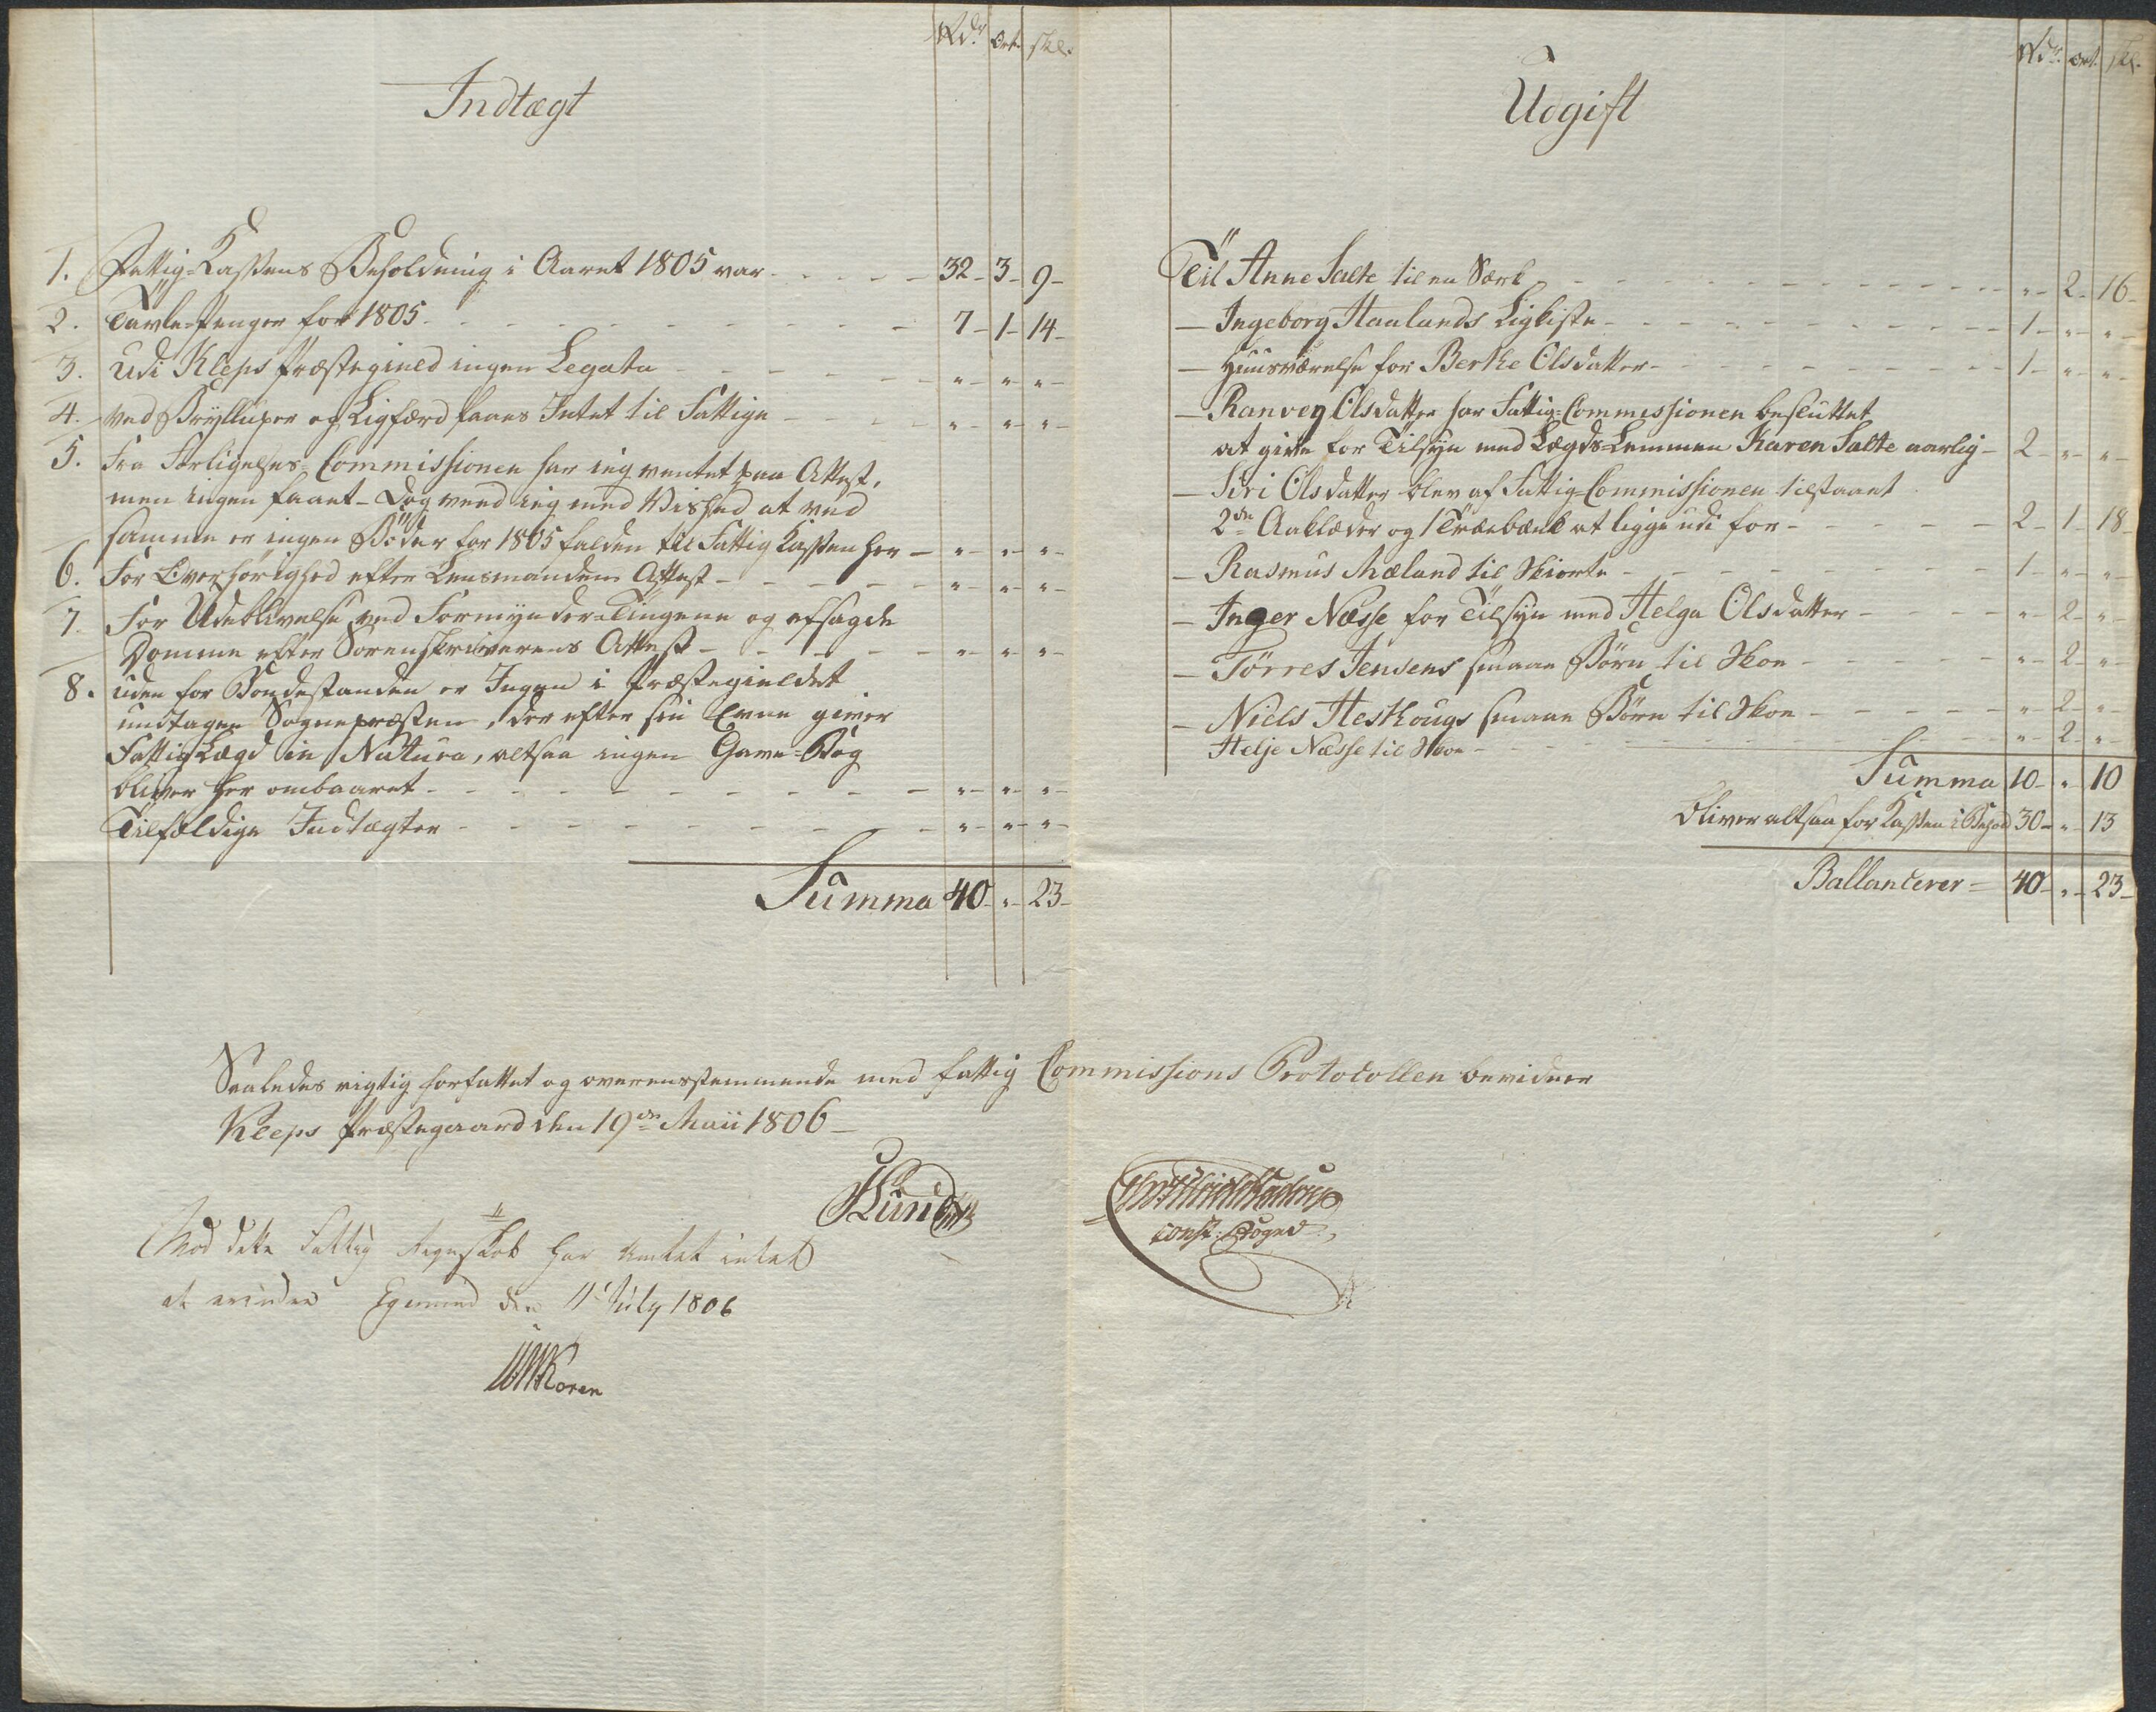 Rdr. Ort. skl.
Indtægt
1. Fattig-Kassens Beholdning i Aaret 1805 var - - - - 32 - 3 - 9 -
2. Tavle-Penger for 1805 - - - - - - - - - 7 - 1 - 14 -
3. Udi Kleps Præstegield ingen Legata - - - - - - " - " - " -
4. ved Bryllüper og Ligfærd faaes Intet til Fattige - - - " - " - " -
5. Fra Forligelses-Commissionen har ieg ventet paa Attest,
men ingen faaet - Dog veed ieg med Vished at ved
samme er ingen Bøder for 1805 falden til Fattig Kassen her - " - " - " -
6. For Overhørighed efter Lensmandens Attest - - - - - " - " - " -
7. For Udeblivelse ved Formynder-Tingene og afsagde
Domme efter Sorenskriverens Attest - - - - - - " - " - " -
8. uden for Bondestanden er Ingen i Præstegieldet
undtagen Sognepræsten, der efter sin Evne giver
Fattig Lægd in Natura, altsaa ingen Gave-Bog
bliver her ombaaret - - - - - - - - - " - " - " -
Tilfældige Indtægter - - - - - - - - - " - " - " -
Summa 40 - " - 23 -
Rdr. Ort. skl.
Udgift
Til Anne Salte til en Særk - - - - - - - - - " - 2 - 16 -
- Ingeborg Haalands Ligkiste - - - - - - - - - 1 - " - " -
- Huusværelse for Berthe Olsdatter - - - - - - - - 1 - " - " -
- Ranveg Olsdatter har Fattig-Commissionen besluttet
at give for Tilsyn med Lægds-Lemmen Karen Salte aarlig - 2 - " - " -
- Siri Olsdatter blev af Fattig-Commissionen tilstaaet
2de Aaklæder og 1 Træebænk at ligge udi for - - - - - 2 - 1 - 18 -
- Rasmus Mæland til Skiorte - - - - - - - - 1 - " - " -
- Inger Næsse for Tilsyn med Helga Olsdatter - - - - " - 2 - " -
- Tørres Jensens smaae Børn til Skoe - - - - - " - 2 - " -
- Niels Heskougs smaae Børn til Skoe - - - - - " - 2 - " -
Helje Næsse til Skoe - - - - - - - - - " - 2 - " -
Summa 10 - " - 10
bliver altsaa for Kassen i Behold 30 - " - 13
Ballancerer = 40 - " - 23 -
Saaledes rigtig forfattet og overensstemmende med fattig Commissions Protocollen bevidner
Kleps Præstegaard den 19de Maii 1806 -
Lund
const: Foged
Mod dette Fattig Regnskab har Amtet intet
at erindre Egersund den 11 July 1806
UWKoren